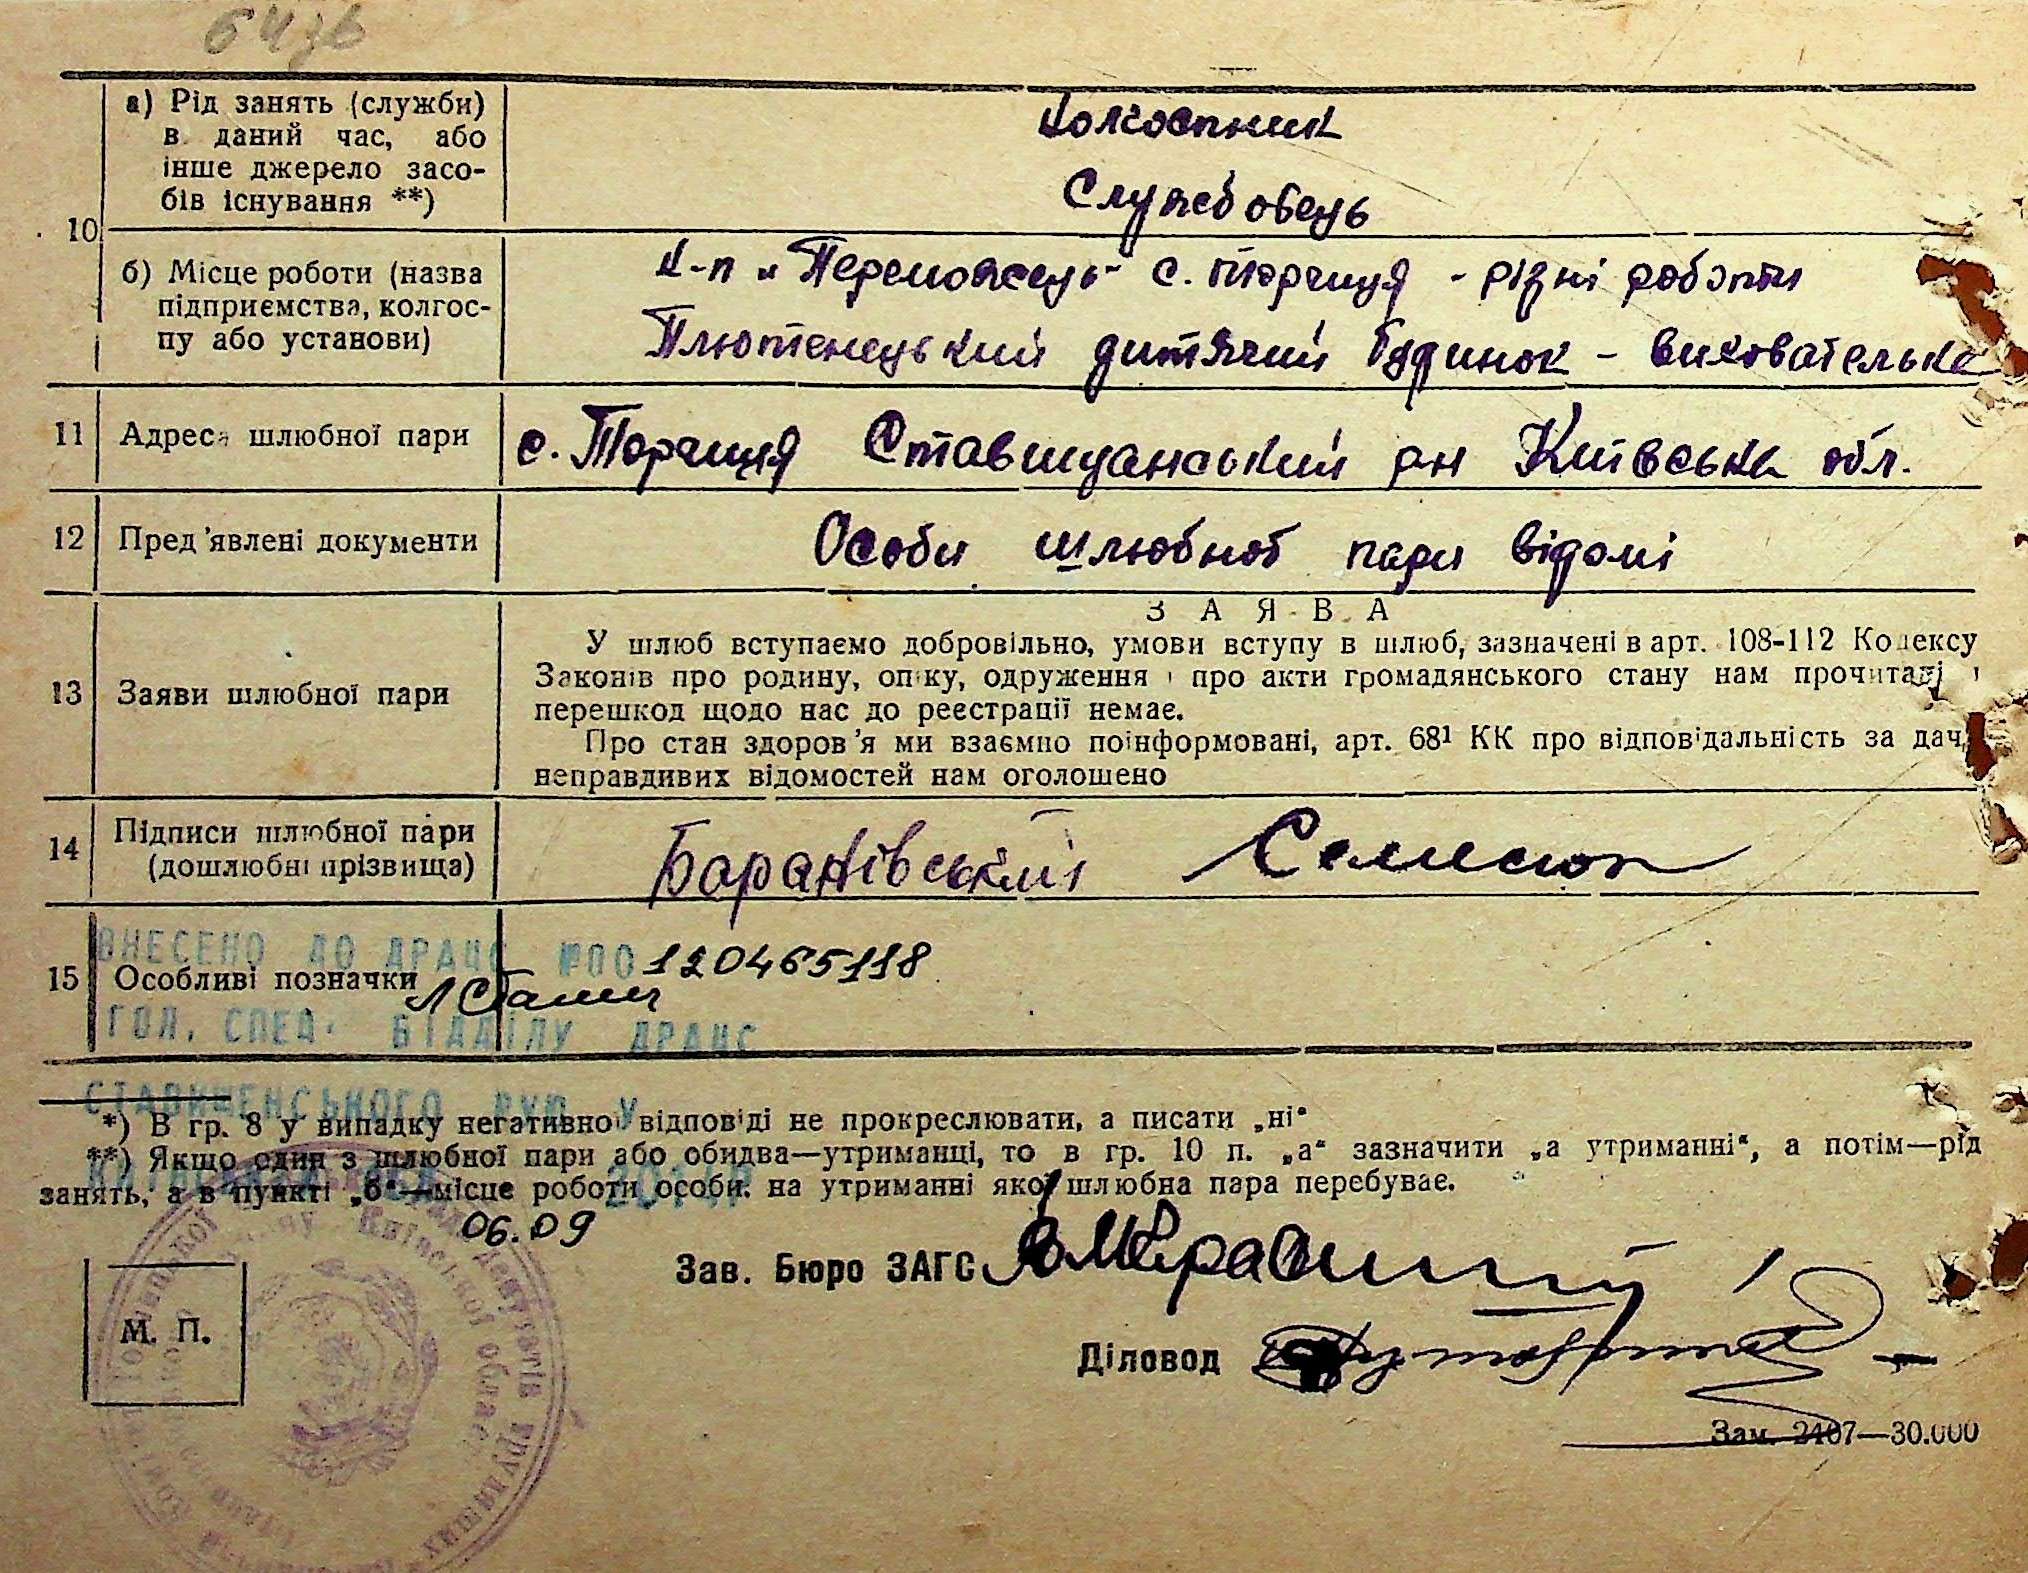 а) Рід занять (служби)
в даний час, або
інше джерело засо-
бів існування **)
колгоспник
Службовець
10
б) Місце роботи (назва
підприємства, колгос-
пу або установи)
к-п „Переможець" с. Торчиця - різні роботи
Плютенецький дитячий будинок - вихователька
11 Адреса шлюбної пари с. Торчиця Ставищанський рн Київська обл.
12 Пред'явлені документи Особи шлюбної пари відомі
ЗАЯВА
13 Заяви шлюбної пари
У шлюб вступаємо добровільно, умови вступу в шлюб, зазначені в арт. 108-112 Кодексу
Законів про родину, опіку, одруження і про акти громадянського стану нам прочитані і
перешкод щодо нас до реєстрації немає.
Про стан здоров'я ми взаємно поінформовані, арт. 68¹ КК про відповідальність за дач
неправдивих відомостей нам оголошено
14 Підписи шлюбної пари
(дошлюбні прізвища)
Барановський
ВНЕСЕНО ДО ДРАЦС №00120465118
15 Особливі позначки
ГОЛ. СПЕЦ. ВІДДІЛУ ДРАЦС
СТАВИЩЕНСЬКОГО РУЮ У
*) В гр. 8 у випадку негативної відповіді не прокреслювати, а писати „ні"
**) Якщо один з шлюбної пари або обидва—утриманці, то в гр. 10 п. „а" зазначити „а утриманні", а потім—рід
занять, а в пункті „б"—місце роботи особи, на утриманні якої шлюбна пара перебуває.
06.09
Зав. Бюро ЗАГС
М. П.
Діловод
Зам. 2407—30.000